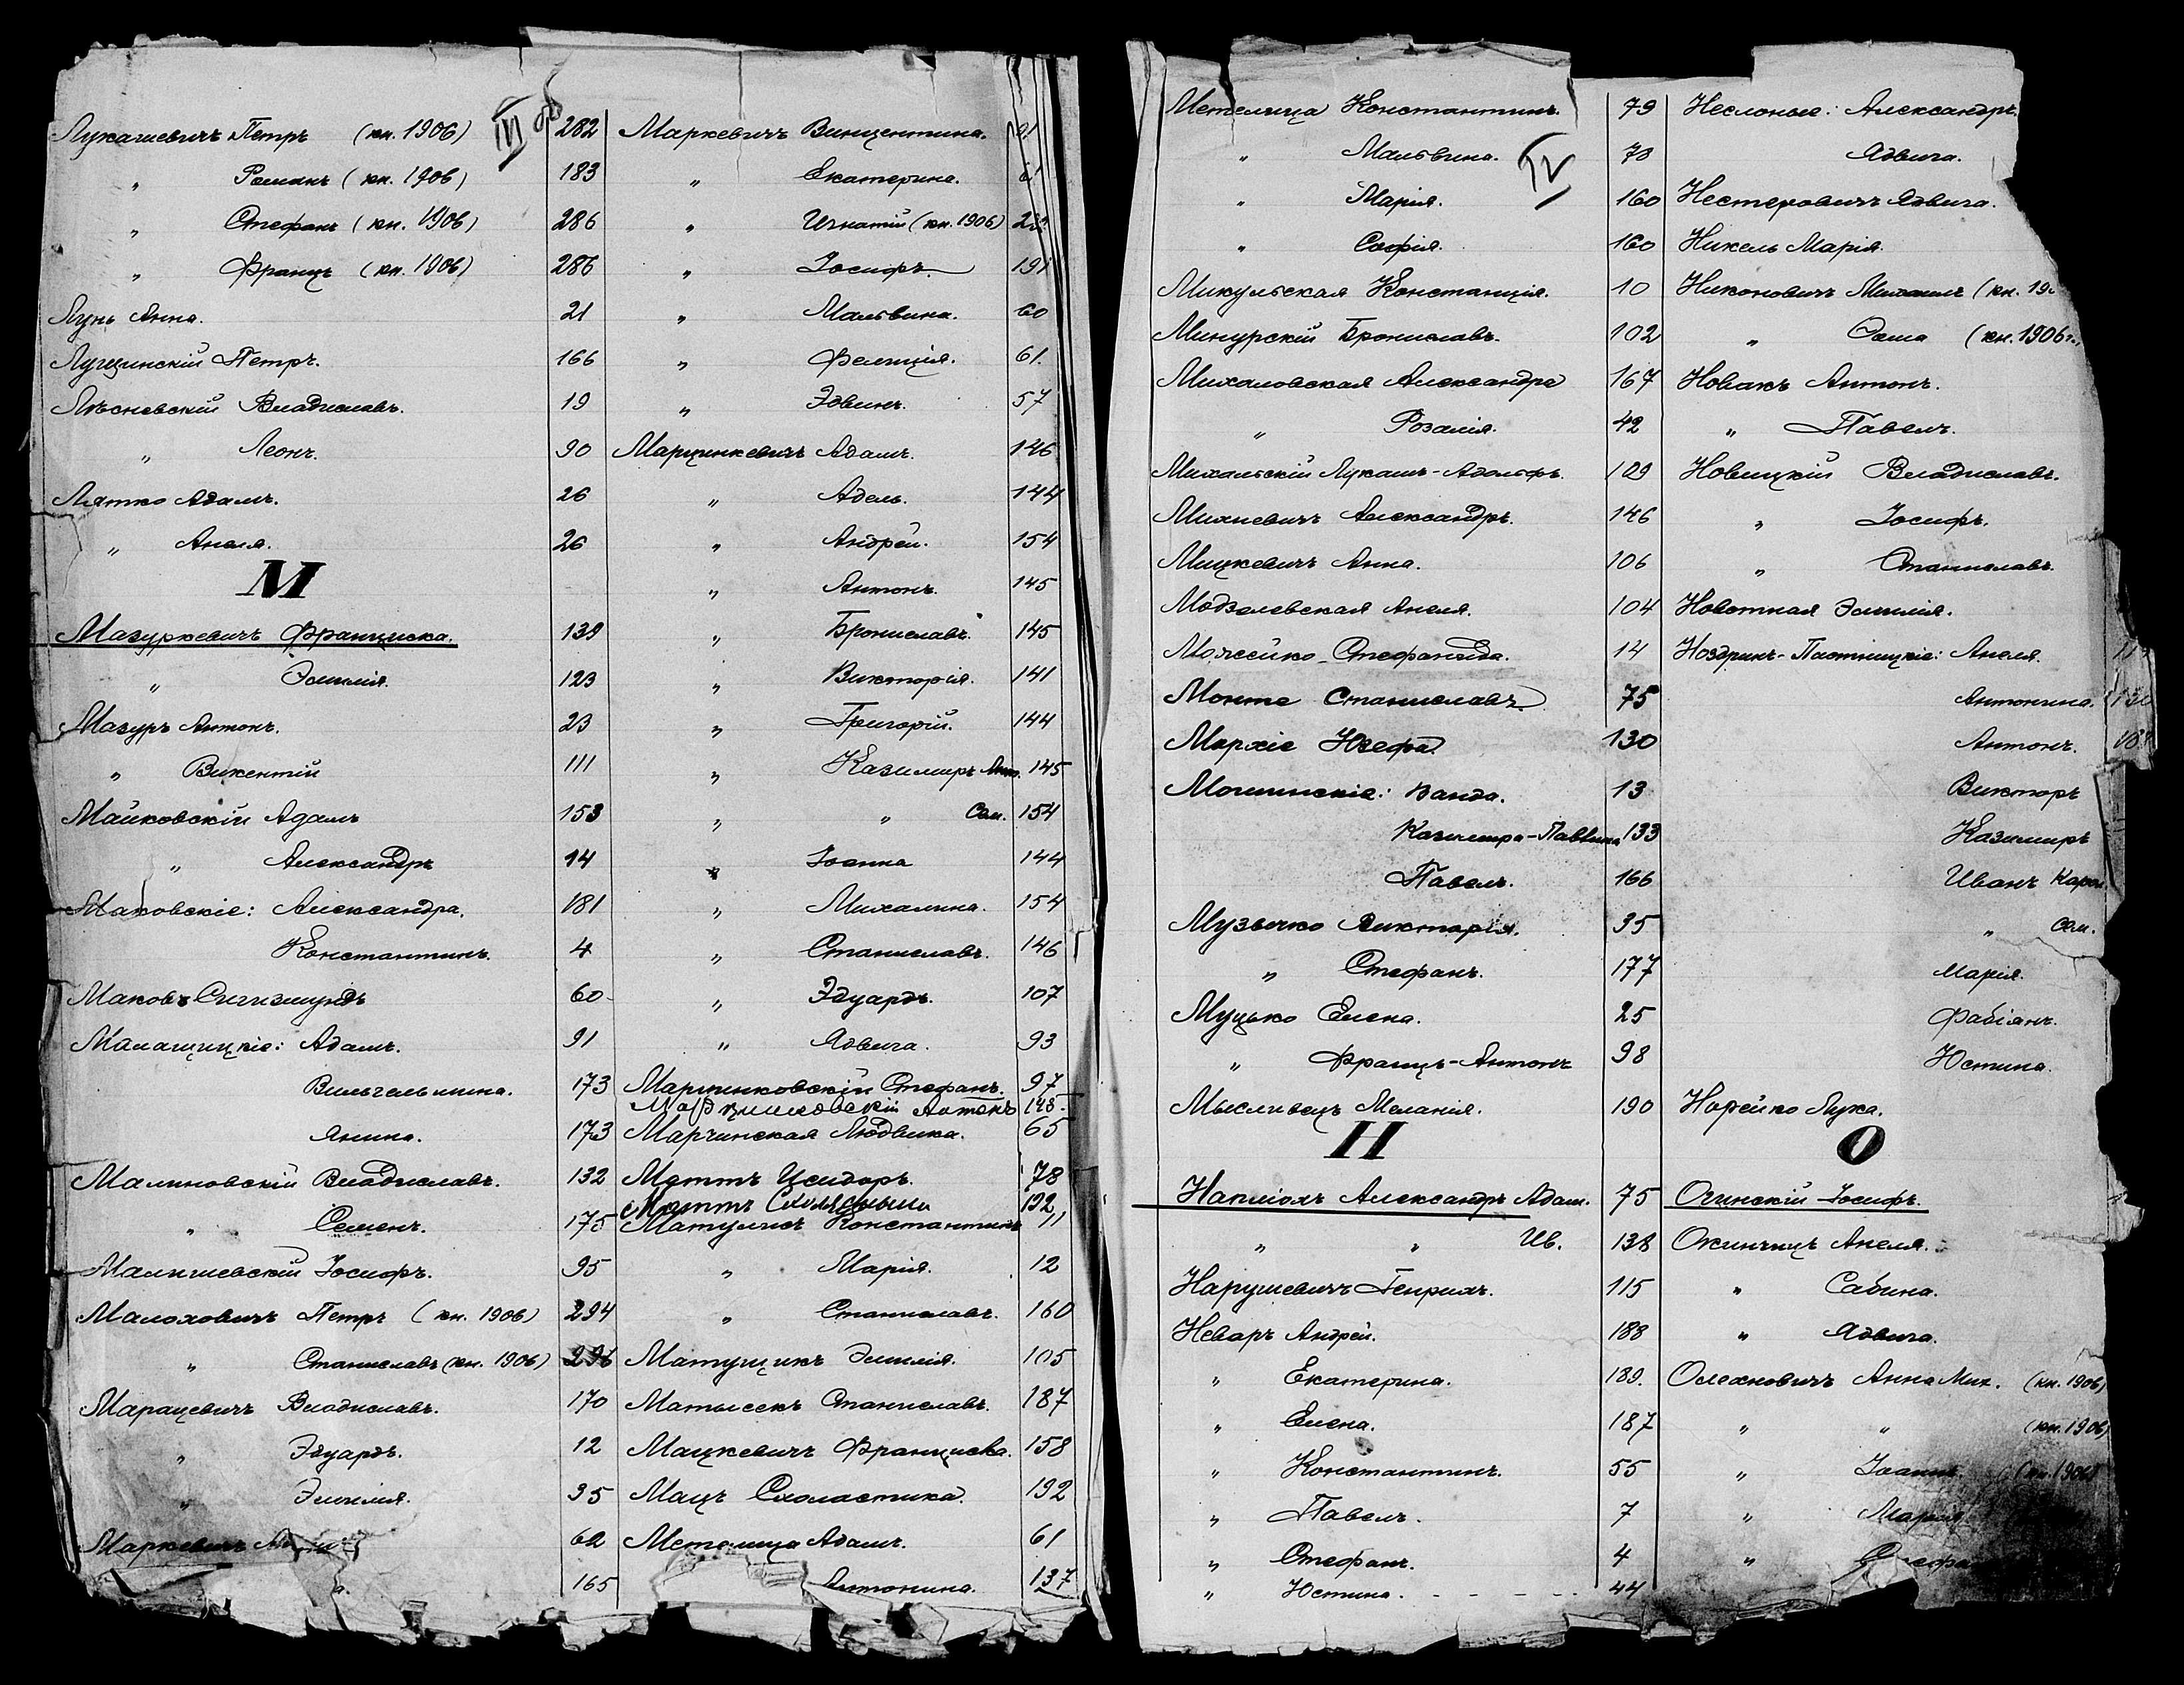 III
Лукашевичъ Петръ (кн. 1906) 282
" Романъ (кн. 1906) 183
" Стефанъ (кн. 1906) 286
" Францъ (кн. 1906) 286
Лунь Анна. 21
Лущинскій Петръ. 166
Лѣсневскій Владиславъ. 19
" Леонъ. 90
Лятко Адамъ. 26
" Анеля. 26
М
Мазуркевичъ Франциска. 139
" Эмилія. 123
Мазуръ Антонъ. 23
" Викентій 111
Майковскій Адамъ 153
" Александръ 14
Маковскіе: Александра. 181
Константинъ. 4
Маковъ Сигизмундъ 60
Малащицкіе: Адамъ. 91
Вильгельмина. 173
Янина. 173
Малиновскій Владиславъ. 132
" Семенъ. 175
Малишевскій Іосифъ. 95
Малоховичъ Петръ (кн. 1906) 294
" Станиславъ (кн. 1906) 296
Марацевичъ Владиславъ. 170
" Эдуардъ. 12
" Эмилія. 35
Маркевичъ 62
165
Маркевичъ Винцентина. 61
" Екатерина. 61
" Игнатій (кн. 1906)
" Іосифъ. 191
" Мальвина. 60
" Фелиція. 61.
" Эдвинъ. 57
Марцинкевичъ Адамъ. 146
" Адель. 144
" Андрей. 154
" Антонъ. 145
" Брониславъ. 145
" Викторія. 141
" Григорій. 144
" Казимиръ Ант. 145
" " Сам. 154
" Іоанна 144
" Михалина. 154
" Станиславъ. 146
" Эдуардъ. 107
" Ядвига. 93
Марцинковскій Стефанъ. 97
Марцинковскій Антонъ 148.
Марчинская Людвика. 65
Маттъ Исидоръ. 78
Маттъ 192
Матулисъ Константинъ 11
" Марія. 12
" Станиславъ. 160
Матущикъ Эмилія. 105
Матысекъ Станиславъ. 187
Мацкевичъ Франциска. 158
Мацъ Схоластика. 192
Метелица Адамъ. 61
Антонина. 137
IV
Метелица Константинъ. 79
" Мальвина. 78
" Марія. 160
" Софія. 160
Микульская Констанція. 10
Минурскій Брониславъ. 102
Михаловская Александра 167
" Розалія. 42
Михальскій Лукашъ-Адольфъ. 109
Михневичъ Александръ. 146
Мицкевичъ Анна. 106
Модзелевская Анеля. 104
Можейко Стефанида. 14
Монте Станиславъ. 75
Мархіе Юзефа. 130
Мошинскіе: Ванда. 13
Казимира-Павлина 133
Павелъ. 166
Музычко Викторія. 35
" Стефанъ. 177
Муцько Елена. 25
" Францъ-Антонъ 98
Мысливецъ Меланія. 190
Н
Напміохъ Александръ Адам. 75
" " Ив. 138
Нарушевичъ Генрихъ. 115
Неваръ Андрей. 188
" Екатерина. 189.
" Елена. 187
" Константинъ. 55
" Павелъ. 7
" Стефанъ. 4
" Юстина. 44
Неслоные: Александръ.
Ядвига.
Нестеровичъ Ядвига.
Никель Марія.
Никоновичъ Михаилъ (кн. 19
" (кн. 1906 г.)
Новакъ Антонъ.
" Павелъ.
Новицкій Владиславъ.
" Іосифъ.
" Станиславъ.
Новотная Эмилія.
Ноздринъ-Плотницкіе: Анеля.
Антонина. 130
Антонъ.
Викторъ
Казимиръ
Иванъ Карол.
" Сам.
Марія.
Фабіянъ.
Юстина.
Норейко Лука.
О
Огинскій Іосифъ.
Окинчицъ Анеля.
" Сабина.
" Ядвига.
Олехновичъ Анна Мих. (кн. 1906)
" " (кн. 1906)
" Іоаннъ. (кн. 1906)
" Марія
" Стефан